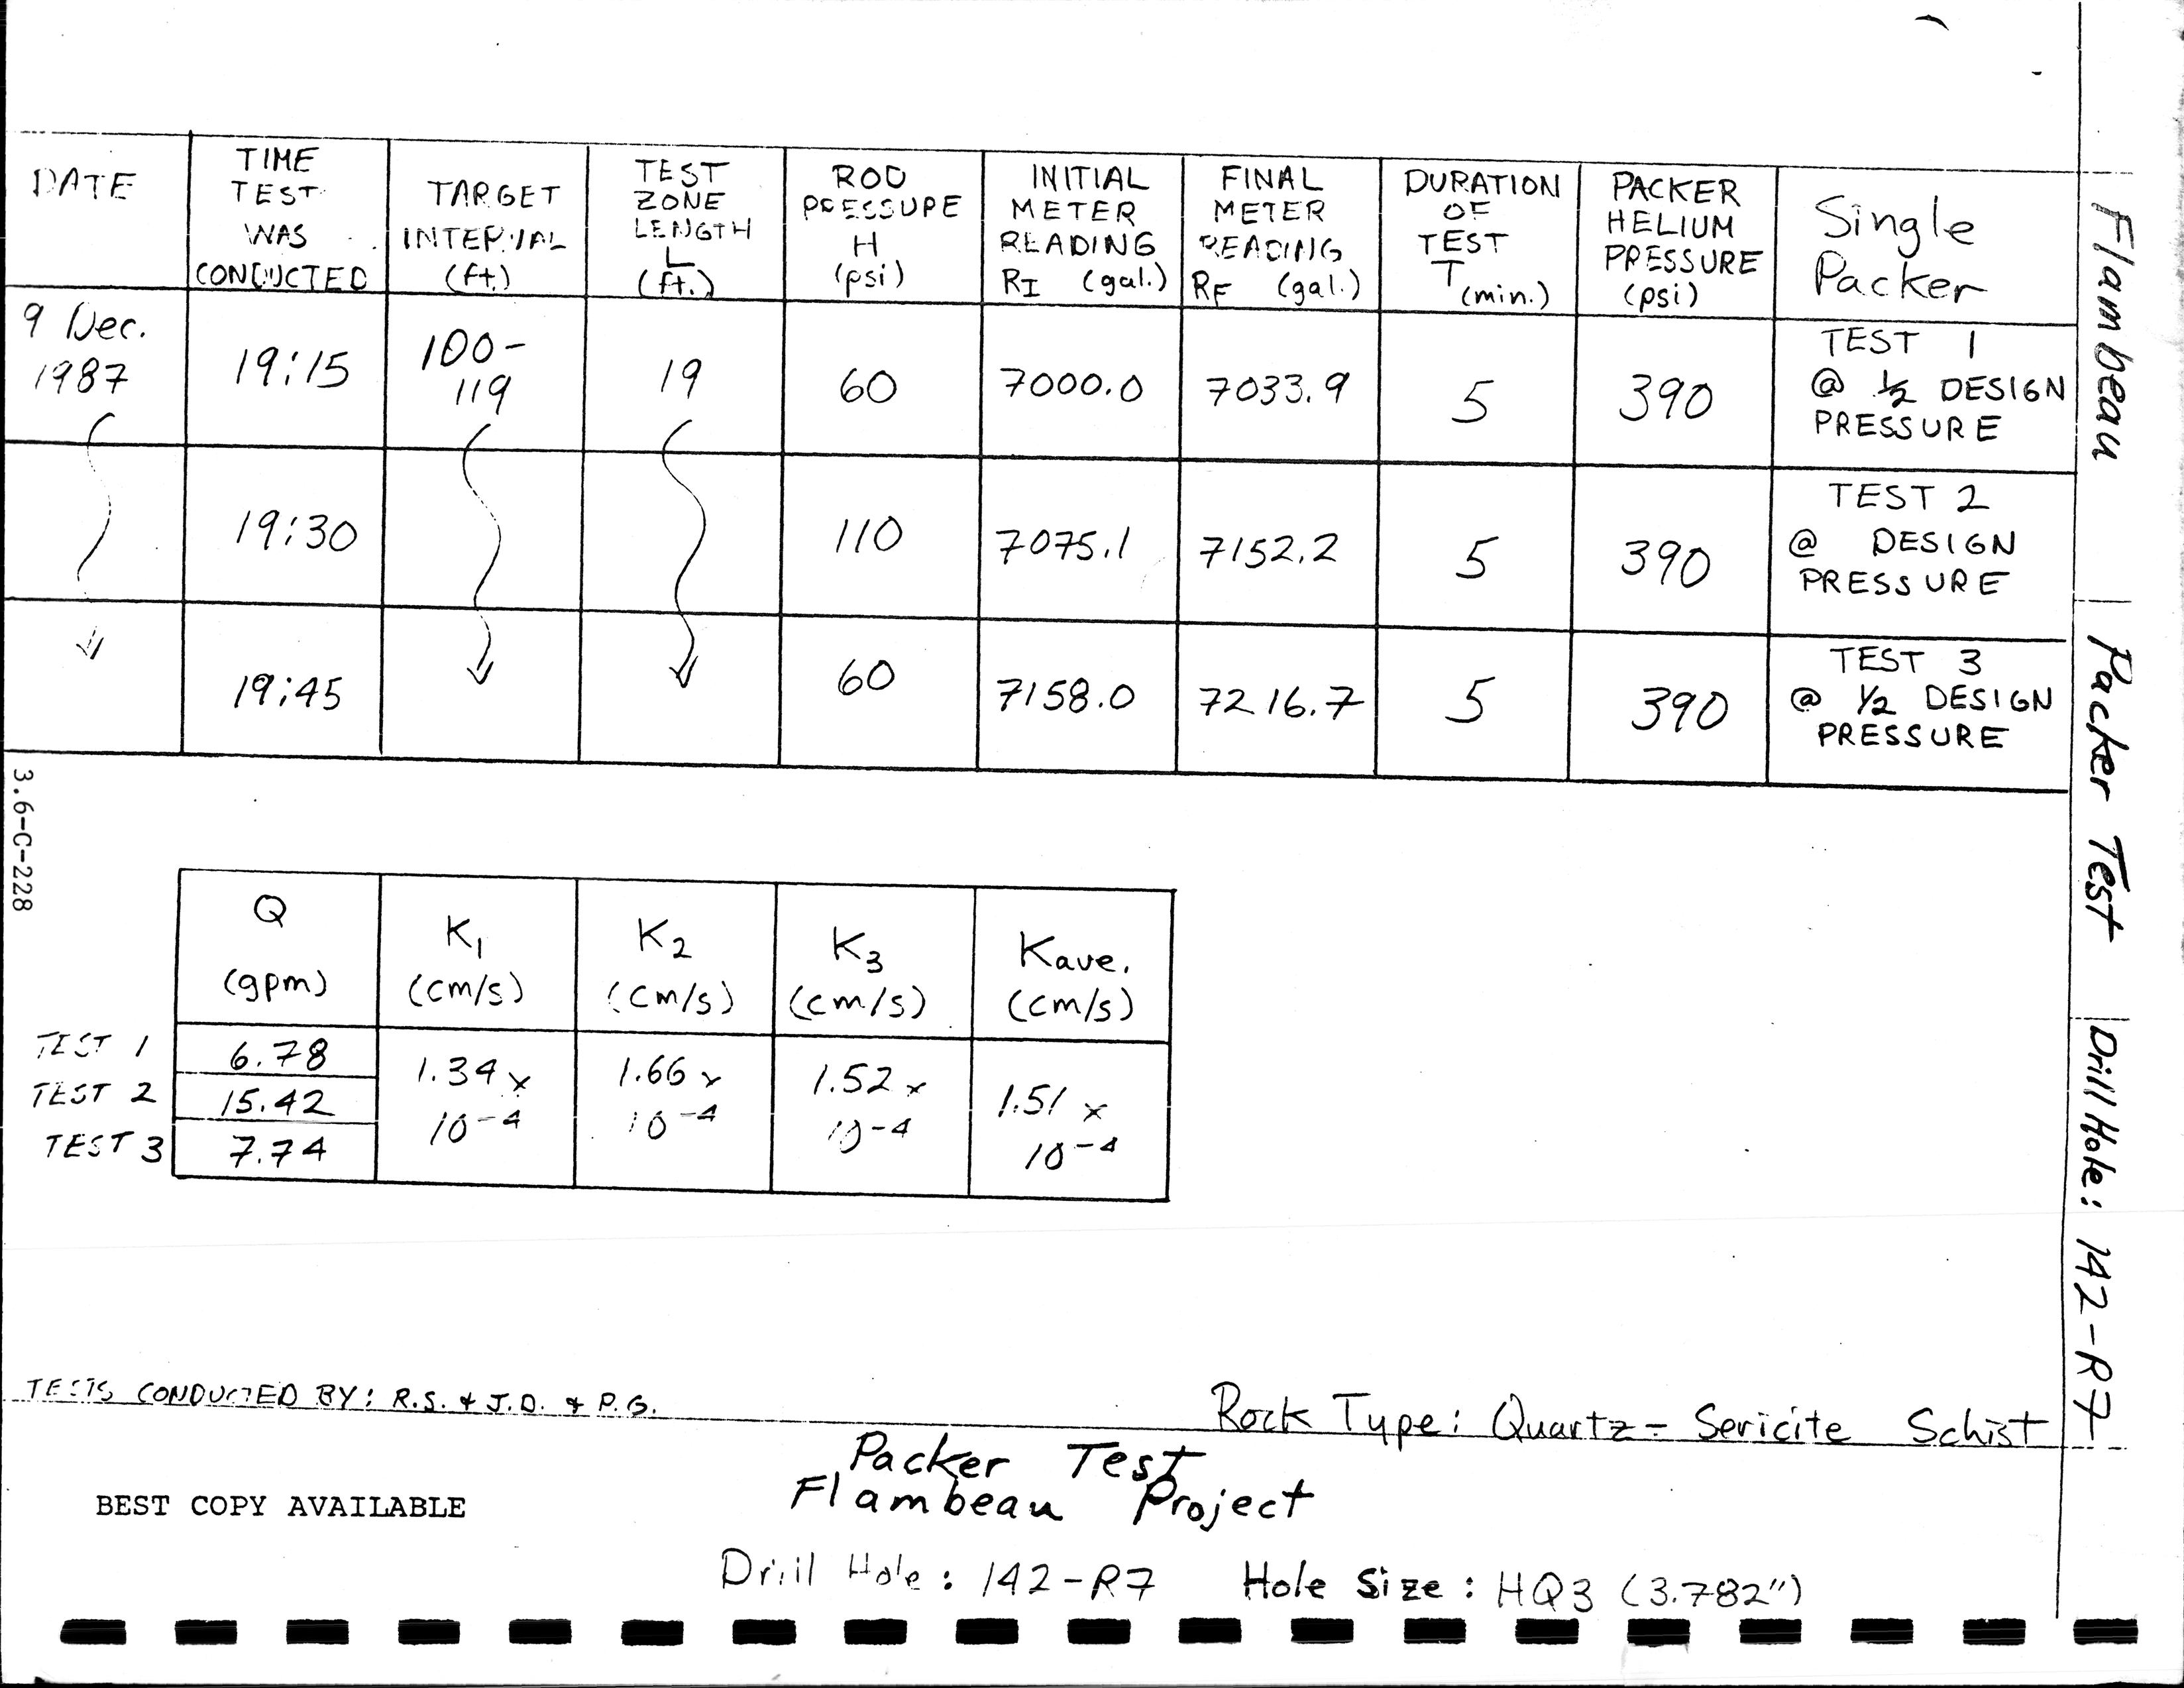 DATE
TIME TEST WAS CONDUCTED
TARGET INTERVAL (ft.)
TEST ZONE LENGTH L (ft.)
ROD PRESSURE H (psi)
INITIAL METER READING RI (gal.)
FINAL METER READING RF (gal.)
DURATION OF TEST T (min.)
PACKER HELIUM PRESSURE (psi)
Single Packer
9 Dec. 1987
19:15
100-119
19
60
7000.0
7033.9
5
390
TEST 1 @ 1/2 DESIGN PRESSURE
19:30
110
7075.1
7152.2
5
390
TEST 2 @ DESIGN PRESSURE
19:45
60
7158.0
7216.7
5
390
TEST 3 @ 1/2 DESIGN PRESSURE
Q (gpm)
K1 (cm/s)
K2 (cm/s)
K3 (cm/s)
Kave. (cm/s)
TEST 1 6.78
TEST 2 15.42
TEST 3 7.74
1.34 x 10-4
1.66 x 10-4
1.52 x 10-4
1.51 x 10-4
TESTS CONDUCTED BY: R.S. & J.D. & P.G.
Rock Type: Quartz-Sericite Schist
Packer Test
Flambeau Project
BEST COPY AVAILABLE
Drill Hole: 142-R7 Hole Size: HQ3 (3.782")
3.6-C-228
Flambeau
Packer Test
Drill Hole: 142-R7